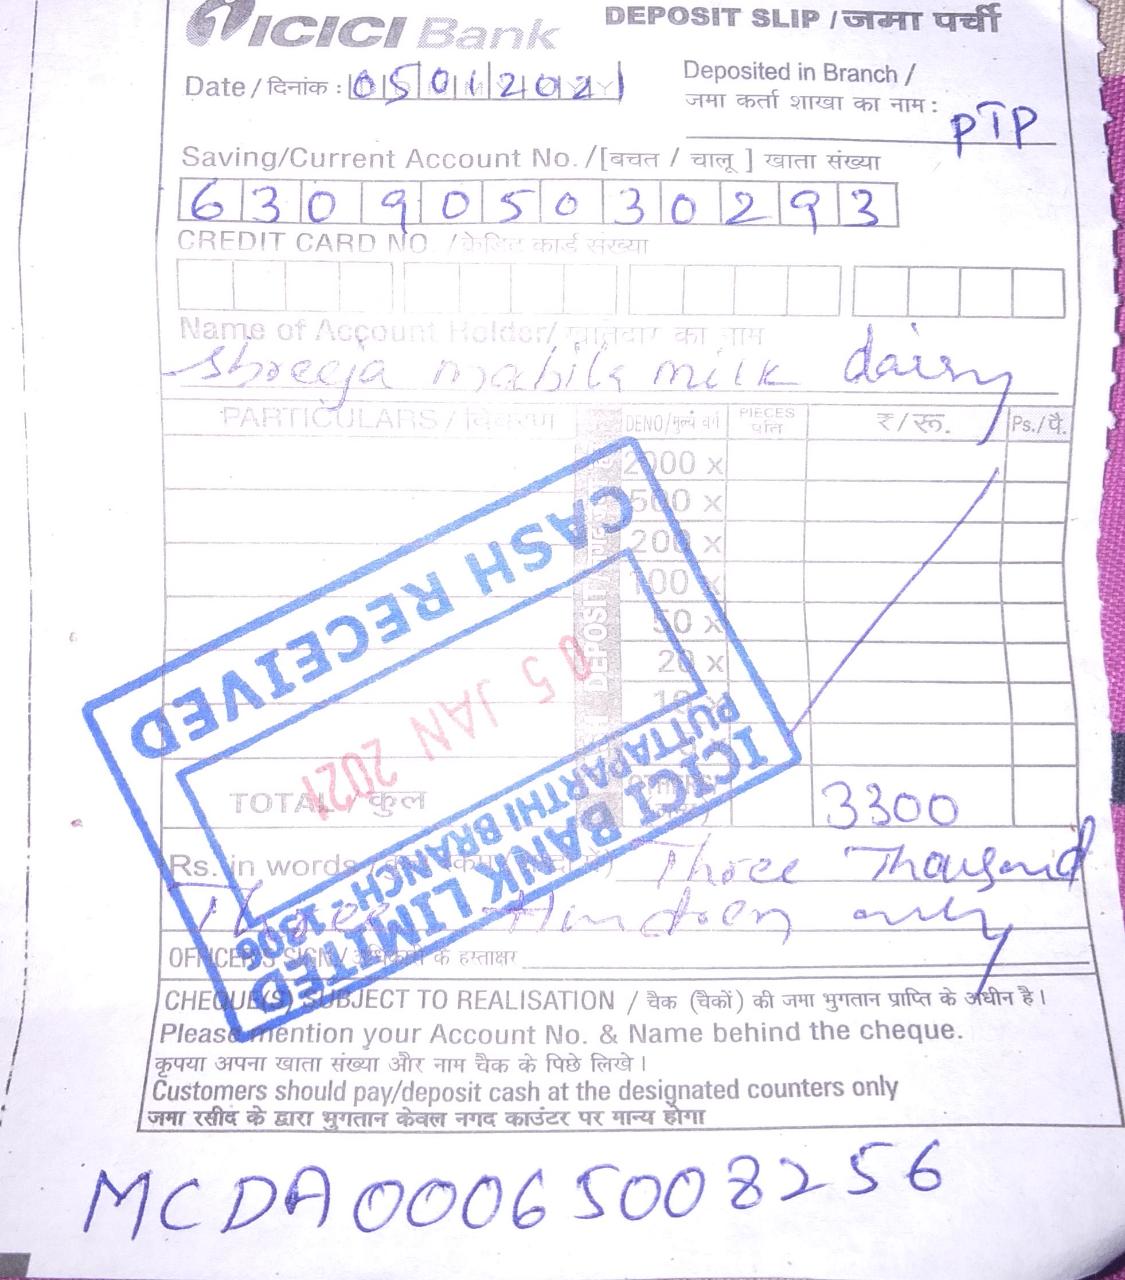 ICICI Bank
DEPOSIT SLIP / जमा पर्ची
Date / दिनांक : 05012021
Deposited in Branch /
जमा कर्ता शाखा का नाम : PTP
Saving/Current Account No. / [बचत / चालू ] खाता संख्या
630905030293
CREDIT CARD NO. / क्रेडिट कार्ड संख्या
Name of Account Holder/ खातेदार का नाम
shreeja mahila milk dairy
PARTICULARS / विवरण DENO/मूल्य वर्ग PIECES ₹/रू. Ps./पै.
2000 x
500 x
200 x
100 x
50 x
20 x
10
CASH DEPOSIT
TOTAL / कुल OTHERS 3300
Rs. in words Three Thousand
Three Hundred only
OFFICER'S SIGN / अधिकारी के हस्ताक्षर
CASH RECEIVED
05 JAN 2021
ICICI BANK LIMITED
PUTTAPARTHI BRANCH - 1306
CHEQUE(S) SUBJECT TO REALISATION / चैक (चैकों) की जमा भुगतान प्राप्ति के अधीन है।
Please mention your Account No. & Name behind the cheque.
कृपया अपना खाता संख्या और नाम चैक के पिछे लिखे।
Customers should pay/deposit cash at the designated counters only
जमा रसीद के द्वारा भुगतान केवल नगद काउंटर पर मान्य होगा
MCDA00065008256